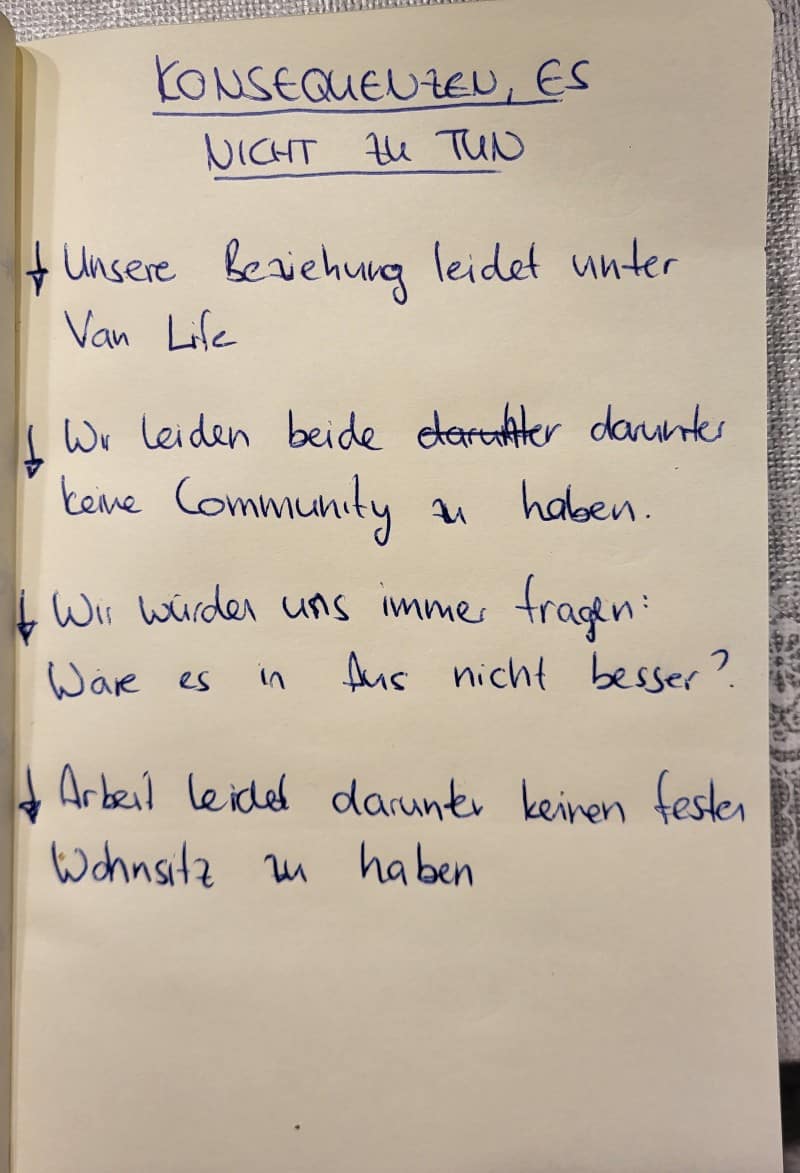 KONSEQUENZEN, ES
NICHT ZU TUN
↓ Unsere Beziehung leidet unter
Van Life
↓ Wir leiden beide darunter darunter
keine Community zu haben.
↓ Wir würden uns immer fragen:
Wäre es in Aus nicht besser?
↓ Arbeit leidet darunter keinen festen
Wohnsitz zu haben